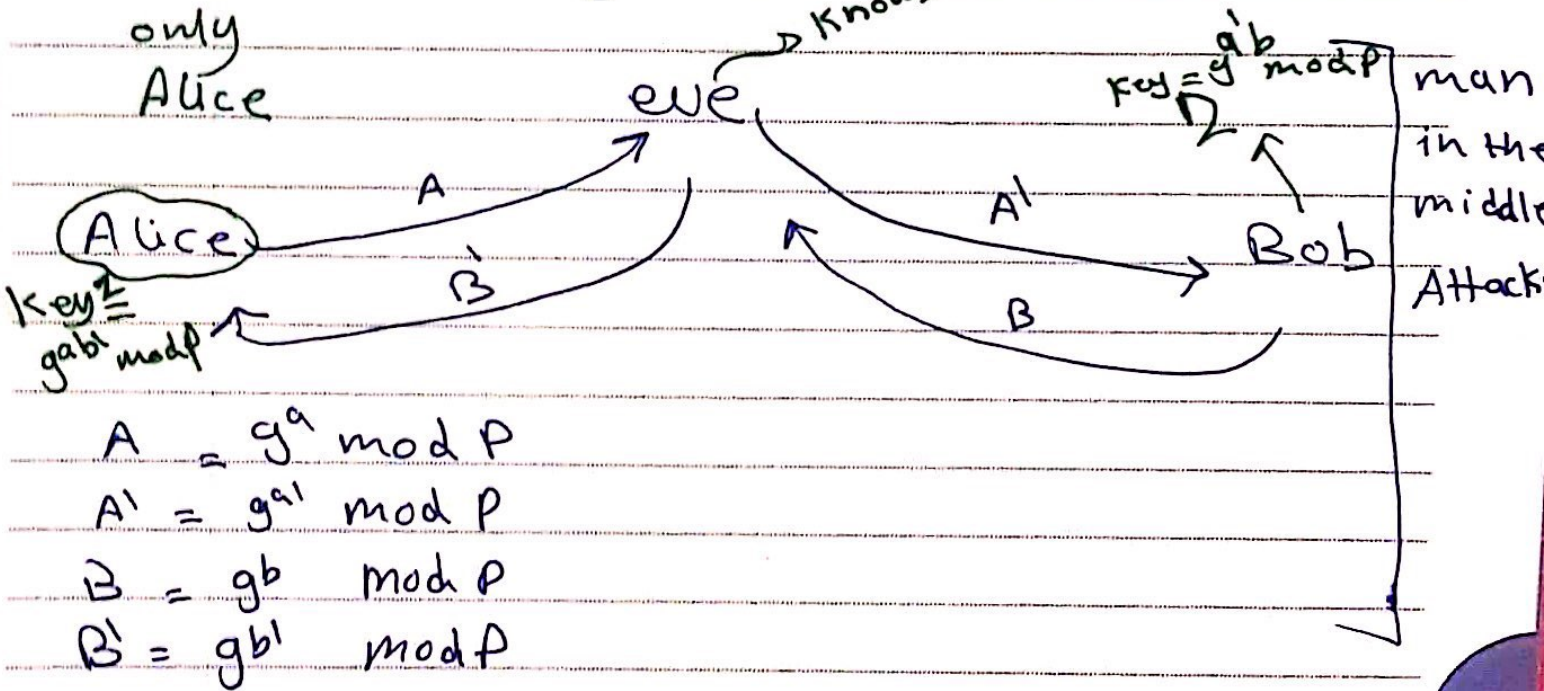 only
Alice
eve
key = g^a'b mod P
man
in the
middle
Attack
A
A'
Alice
Bob
B'
B
key = g^ab' mod P
A = g^a mod P
A' = g^a' mod P
B = g^b mod P
B' = g^b' mod P